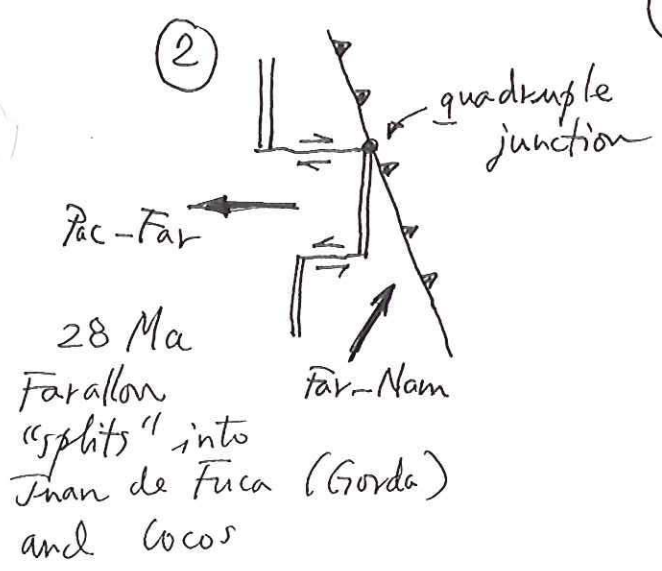 2
quadruple
junction
Pac-Far
28 Ma
Farallon
"splits" into
Juan de Fuca (Gorda)
and Cocos
Far-Nam